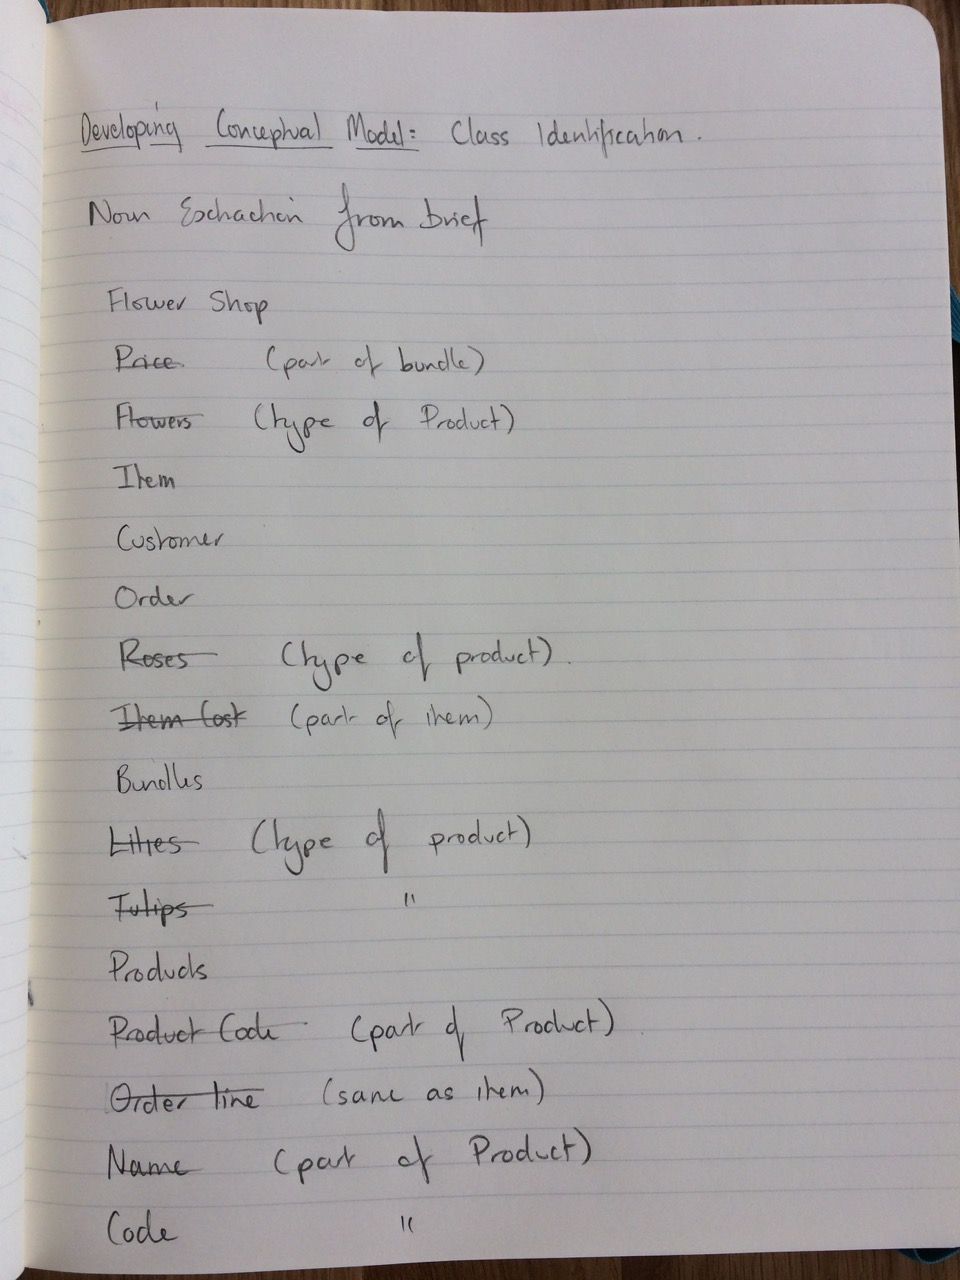 Developing Conceptual Model: Class Identification.
Noun Extraction from brief
Flower Shop
Price (part of bundle)
Flowers (type of Product)
Item
Customer
Order
Roses (type of product).
Item Cost (part of item)
Bundles
Lilies (type of product)
Tulips "
Products
Product Code (part of Product)
Order line (same as item)
Name (part of Product)
Code "